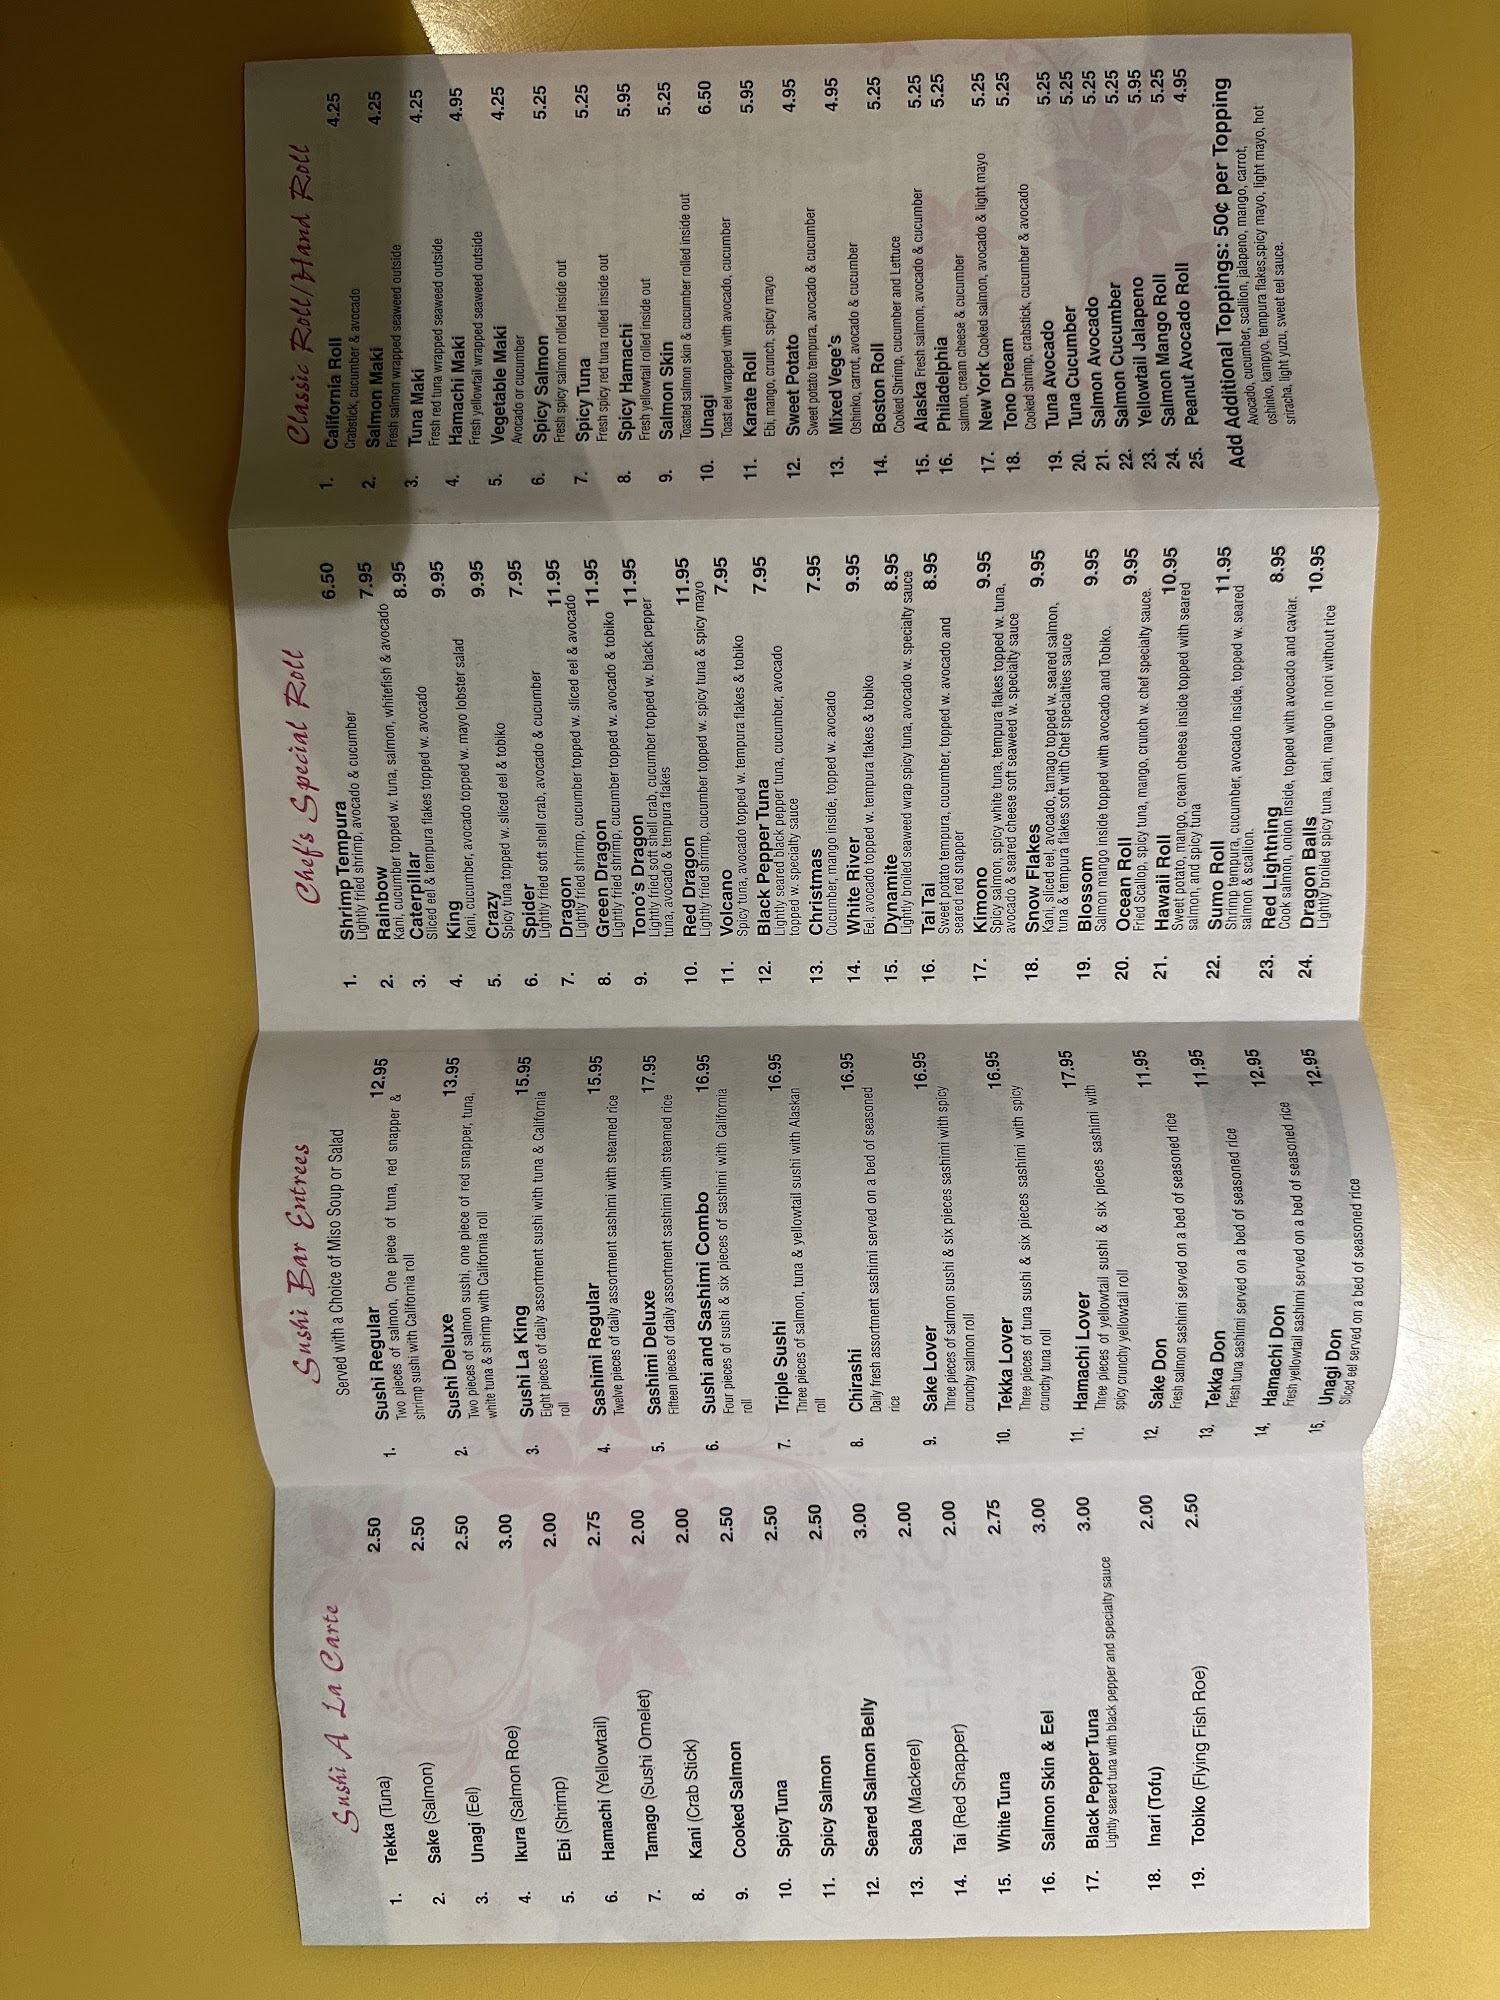 Sushi A La Carte
1. Tekka (Tuna) 2.50
2. Sake (Salmon) 2.50
3. Unagi (Eel) 2.50
4. Ikura (Salmon Roe) 3.00
5. Ebi (Shrimp) 2.00
6. Hamachi (Yellowtail) 2.75
7. Tamago (Sushi Omelet) 2.00
8. Kani (Crab Stick) 2.00
9. Cooked Salmon 2.50
10. Spicy Tuna 2.50
11. Spicy Salmon 2.50
12. Seared Salmon Belly 3.00
13. Saba (Mackerel) 2.00
14. Tai (Red Snapper) 2.00
15. White Tuna 2.75
16. Salmon Skin & Eel 3.00
17. Black Pepper Tuna 3.00
Lightly seared tuna with black pepper and specialty sauce
18. Inari (Tofu) 2.00
19. Tobiko (Flying Fish Roe) 2.50
Sushi Bar Entrees
Served with a Choice of Miso Soup or Salad
1. Sushi Regular 12.95
Two pieces of salmon, One piece of tuna, red snapper &
shrimp sushi with California roll
2. Sushi Deluxe 13.95
Two pieces of salmon sushi, one piece of red snapper, tuna,
white tuna & shrimp with California roll
3. Sushi La King 15.95
Eight pieces of daily assortment sushi with tuna & California
roll
4. Sashimi Regular 15.95
Twelve pieces of daily assortment sashimi with steamed rice
5. Sashimi Deluxe 17.95
Fifteen pieces of daily assortment sashimi with steamed rice
6. Sushi and Sashimi Combo 16.95
Four pieces of sushi & six pieces of sashimi with California
roll
7. Triple Sushi 16.95
Three pieces of salmon, tuna & yellowtail sushi with Alaskan
roll
8. Chirashi 16.95
Daily fresh assortment sashimi served on a bed of seasoned
rice
9. Sake Lover 16.95
Three pieces of salmon sushi & six pieces sashimi with spicy
crunchy salmon roll
10. Tekka Lover 16.95
Three pieces of tuna sushi & six pieces sashimi with spicy
crunchy tuna roll
11. Hamachi Lover 17.95
Three pieces of yellowtail sushi & six pieces sashimi with
spicy crunchy yellowtail roll
12. Sake Don 11.95
Fresh salmon sashimi served on a bed of seasoned rice
13. Tekka Don 11.95
Fresh tuna sashimi served on a bed of seasoned rice
14. Hamachi Don 12.95
Fresh yellowtail sashimi served on a bed of seasoned rice
15. Unagi Don 12.95
Sliced eel served on a bed of seasoned rice
Chef's Special Roll
1. Shrimp Tempura 6.50
Lightly fried shrimp, avocado & cucumber
2. Rainbow 7.95
Kani, cucumber topped w. tuna, salmon, whitefish & avocado
3. Caterpillar 8.95
Sliced eel & tempura flakes topped w. avocado
4. King 9.95
Kani, cucumber, avocado topped w. mayo lobster salad
5. Crazy 9.95
Spicy tuna topped w. sliced eel & tobiko
6. Spider 7.95
Lightly fried soft shell crab, avocado & cucumber
7. Dragon 11.95
Lightly fried shrimp, cucumber topped w. sliced eel & avocado
8. Green Dragon 11.95
Lightly fried shrimp, cucumber topped w. avocado & tobiko
9. Tono's Dragon 11.95
Lightly fried soft shell crab, cucumber topped w. black pepper
tuna, avocado & tempura flakes
10. Red Dragon 11.95
Lightly fried shrimp, cucumber topped w. spicy tuna & spicy mayo
11. Volcano 7.95
Spicy tuna, avocado topped w. tempura flakes & tobiko
12. Black Pepper Tuna 7.95
Lightly seared black pepper tuna, cucumber, avocado
topped w. specialty sauce
13. Christmas 7.95
Cucumber, mango inside, topped w. avocado
14. White River 9.95
Eel, avocado topped w. tempura flakes & tobiko
15. Dynamite 8.95
Lightly broiled seaweed wrap spicy tuna, avocado w. specialty sauce
16. Tai Tai 8.95
Sweet potato tempura, cucumber, topped w. avocado and
seared red snapper
17. Kimono 9.95
Spicy salmon, spicy white tuna, tempura flakes topped w. tuna,
avocado & seared cheese soft seaweed w. specialty sauce
18. Snow Flakes 9.95
Kani, sliced eel, avocado, tamago topped w. seared salmon,
tuna & tempura flakes soft with Chef specialties sauce
19. Blossom 9.95
Salmon mango inside topped with avocado and Tobiko.
20. Ocean Roll 9.95
Fried Scallop, spicy tuna, mango, crunch w. chef specialty sauce.
21. Hawaii Roll 10.95
Sweet potato, mango, cream cheese inside topped with seared
salmon, and spicy tuna
22. Sumo Roll 11.95
Shrimp tempura, cucumber, avocado inside, topped w. seared
salmon & scallion.
23. Red Lightning 8.95
Cook salmon, onion inside, topped with avocado and caviar.
24. Dragon Balls 10.95
Lightly broiled spicy tuna, kani, mango in nori without rice
Classic Roll/Hand Roll
1. California Roll 4.25
Crabstick, cucumber & avocado
2. Salmon Maki 4.25
Fresh salmon wrapped seaweed outside
3. Tuna Maki 4.25
Fresh red tuna wrapped seaweed outside
4. Hamachi Maki 4.95
Fresh yellowtail wrapped seaweed outside
5. Vegetable Maki 4.25
Avocado or cucumber
6. Spicy Salmon 5.25
Fresh spicy salmon rolled inside out
7. Spicy Tuna 5.25
Fresh spicy red tuna rolled inside out
8. Spicy Hamachi 5.95
Fresh yellowtail rolled inside out
9. Salmon Skin 5.25
Toasted salmon skin & cucumber rolled inside out
10. Unagi 6.50
Toast eel wrapped with avocado, cucumber
11. Karate Roll 5.95
Ebi, mango, crunch, spicy mayo
12. Sweet Potato 4.95
Sweet potato tempura, avocado & cucumber
13. Mixed Vege's 4.95
Oshinko, carrot, avocado & cucumber
14. Boston Roll 5.25
Cooked Shrimp, cucumber and Lettuce
15. Alaska Fresh salmon, avocado & cucumber 5.25
16. Philadelphia 5.25
salmon, cream cheese & cucumber
17. New York Cooked salmon, avocado & light mayo 5.25
18. Tono Dream 5.25
Cooked shrimp, crabstick, cucumber & avocado
19. Tuna Avocado 5.25
20. Tuna Cucumber 5.25
21. Salmon Avocado 5.25
22. Salmon Cucumber 5.25
23. Yellowtail Jalapeno 5.95
24. Salmon Mango Roll 5.25
25. Peanut Avocado Roll 4.95
Add Additional Toppings: 50¢ per Topping
Avocado, cucumber, scallion, jalapeno, mango, carrot,
oshinko, kampyo, tempura flakes,spicy mayo, light mayo, hot
sriracha, light yuzu, sweet eel sauce.